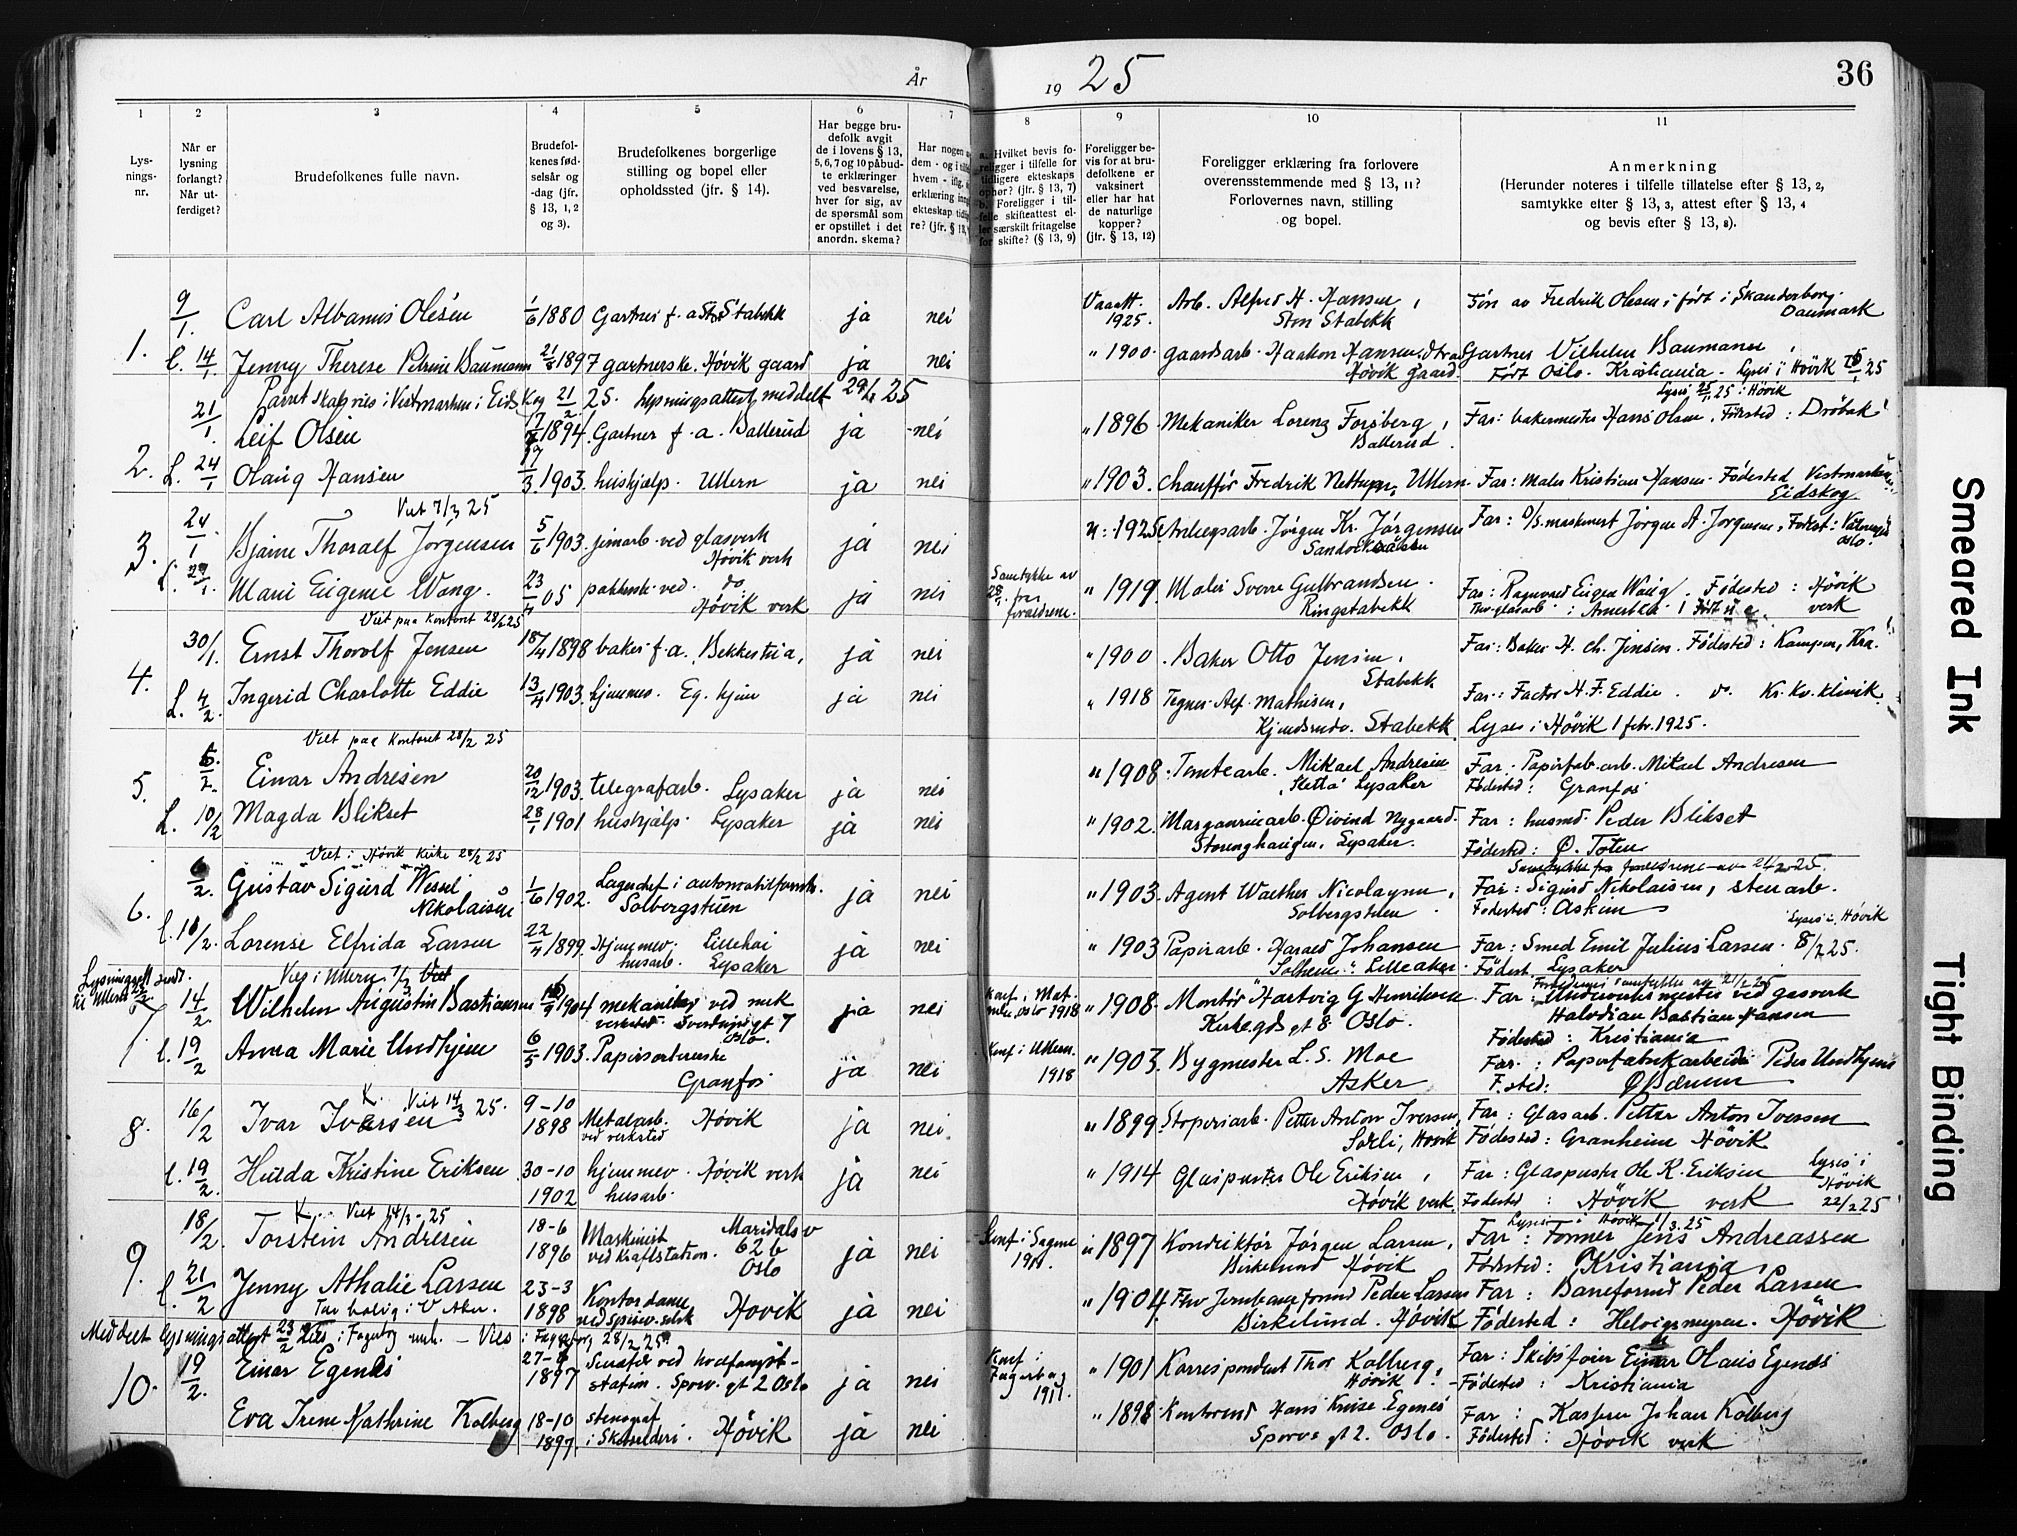 År
19 25
36
1
2
3
4
5
6
7
8
9
10
11
Lys-
nings-
nr.
Når er
lysning
forlangt?
Når ut-
ferdiget?
Brudefolkenes fulle navn.
Brudefol-
kenes fød-
selsår og
-dag (jfr.
§ 13, 1, 2
og 3).
Brudefolkenes borgerlige
stilling og bopel eller
opholdssted (jfr. § 14).
Har begge bru-
defolk avgit
de i lovens § 13,
5, 6, 7 og 10 påbud-
te erklæringer
ved besvarelse,
hver for sig, av
de spørsmål som
er opstillet i det
anordn. skema?
Har nogen a
dem - og i
hvem - ifig.
erklæring
ekteskap tidl
re? (jfr. § 13,
Hvilket bevis fo-
religger i tilfelle for
tidligere ekteskaps
ophør? (jfr. § 13, 7)
b. Foreligger i til-
felle skifteattest el-
ler særskilt fritagelse
for skifte? (§ 13, 9)
Foreligger be-
vis for at bru-
defolkene er
vaksinert
eller har hat
de naturlige
kopper?
(jfr. § 13, 12)
Foreligger erklæring fra forlovere
overensstemmende med § 13, 11?
Forlovernes navn, stilling
og bopel.
Anmerkning
(Herunder noteres i tilfelle tillatelse efter § 13, 2,
samtykke efter § 13, 3, attest efter § 13, 4
og bevis efter § 13, 8).
1. 9/1. Carl Albanus Olesen 1/6 1880 Gartner f. a. Stabekk ja nei Vaatt. 1925. Arb. Alfred H. Hansen, Søn av Fredrik Olesen, født i Skanderborg.
Stabekk Danmark
L. 14/1. Jenny Therese Petrine Baumann 21/5 1897 gartnerske. Høvik gaard ja nei " 1900. gaardsarb. Haakon Hansen Gartner Vilhelm Baumann,
Høvik gaard. Født Oslo. Kristiania. Lyses i Høvik 25
Parret skal vies i Vestmarken i Eidskog 21/2 25. Lysningsattest meddelt
2. 21/1. Leif Olsen 1894. Gartner f. a. Ballerud ja nei " 1896. Mekaniker Lorenz Forsberg, Far: bakermester Hans Olsen. Fødested: Drøbak
Ballerud.
L. 24/1 Olaug Hansen 17/3. 1903. hushjælp. Ullern ja nei " 1903. Chauffør Fredrik Nettum, Ullern. Far: Maler Kristian Hansen. Fødested Vestmarken
Eidskog.
Viet 7/3 25
3. 24/1 Bjarne Thoralf Jørgensen 5/6 1903. jernarb. ved glasverk ja nei " 1925. Jørgen Kr. Jørgensen Far: Jørgen A. Jørgensen,
Høvik verk Oslo.
L. 29/1. Marie Eugenie Wang. 23/4 05 pakkerske ved do. ja nei Samtykke av " 1919. Maler Sverre Gulbrandsen. Far: Ragnvald Eugen Wang. Fødested: Høvik
Høvik verk fra forældrene. Ringstabekk verk
Viet paa kontoret 28/2 25
4. 30/1. Ernst Thorolf Jensen 18/4 1898 baker f. a. Bekkestua, ja nei " 1900. Baker Otto Jensen, Far: Baker H. Ch. Jensen. Fødested: Kampen, Kra.
Stabekk
L. 4/2. Ingerid Charlotte Eddie 13/4 1903. hjemmev. Eg. hjem ja nei " 1918 Tegner Alf. Mathisen, Far: Factor H. F. Eddie. do. Kr. Kv. klinik
Stabekk. Lyses i Høvik 1 febr. 1925.
Viet paa kontoret 28/2 25
5. 5/2. Einar Andresen 20/12 1903. telegrafarb. Lysaker ja nei " 1908. Tomtearb. Mikael Andresen Far. Papirfab. arb. Mikael Andresen
Sletta Lysaker Fødested: Granfos
L. 10/2 Magda Blikset 28/1 1901 hushjælp. Lysaker ja nei " 1902. Margarinarb. Øivind Nygaard. Far: husmd. Peder Blikset
Lysaker. Fødested: Ø. Toten
Viet i Høvik kirke 28/2 25 Samtykke fra forældrene av 21/2 25.
6. 6/2. Gustav Sigurd Wessel 1/6 1902. Lagerchef i automobilforr. ja nei " 1903. Agent Walther Nicolaysen, Far: Sigurd Nikolaisen, stenarb.
Nikolaisen Solbergstuen Solbergstuen Fødested: Askim
L. 10/2. Lorense Elfrida Larsen 22/4 1899. Hjemmev. Lillehai ja nei " 1903 Papirarb. Harald Johansen Far: Smed Emil Julius Larsen. 8/2 25. Lyses i Høvik
husarb. Lysaker Solheim. Lilleaker. Fødest. Lysaker
Lysningsatt sendt til Ullern Vies i Ullern 7/3
7. 14/2. Wilhelm Augustin Bastiansen 1904 mekaniker ved mek ja nei Konf. i Mat- " 1908. Montør Hartvig G. Henriksen Far: Undervarmemester ved gasverk
verksted. Sverdrupsgt 7 Oslo. Oslo 1918 Kirkegds gt 8. Oslo. Halvdian Bastian Hansen
Fødested: Kristiania
L. 19/2 Anna Marie Undhjem 6/5 1903. Papirsortererske ja nei Konf i Ullern. " 1903. Bygmester L. S. Moe Far: Papirfabrikarbeider Peder Undhjem
Granfos 1918 Asker F.sted: Ø Bærum
K. Viet 14/3 25.
8. 16/2 Ivar Iversen 9-10 1898 Metalarb. Høvik ja nei. " 1899. Stoperiarb. Petter Anton Iversen, Far: Glasarb. Petter Anton Iversen
ved verksted Solli, Høvik Fødested: Granheim Høvik
L. 19/2. Hulda Kristine Eriksen 30-10 1902 hjemmev. Høvik verk ja nei " 1914 Glaspuster Ole Eriksen, Far: Glaspuster Ole K. Eriksen Lyses i
husarb. Høvik verk. Fødested: Høvik verk Høvik 22/2 25
K. Viet 14/3 - 25 Lyses i Høvik 1/3. 25
9. 18/2. Torstein Andresen 18-6 1896 Maskinist Maridalsv ja nei Konf. i Sagene " 1897 Konduktør Jørgen Larsen, Far: Former Jens Andreassen
ved kraftstation. 62 b Oslo 1911. Birkelund Høvik Fødested: Kristiania,
L. 21/2 Jenny Athalie Larsen 23-3 1898 Kontordame Høvik ja nei " 1904. Fhv. Jernbaneformd Peder Larsen Far: Baneformd Peder Larsen
Tar bolig i V. Aker. Birkelund. Høvik Fødested: Høvik
Meddelt lysningsattest 23/2 Vies i Fagerborg 28/2 25.
10. 19/2. Einar Egenes 27- 1897 Sekretær ved hvalfangst- ja nei Konf. i " 1901 Korrespondent Thor Kolberg, Far: Skibsfører Einar Olaus Egenes
station. Sporv. gt 2 Oslo Fagerborg 1911. Høvik. Fødested: Kristiania
Eva Irene Kathrine Kolberg 18-10 1897 stenograf Høvik ja nei " 1898 Kontormd Hans Kruse Egenes Far: Kasper Johan Kolberg
Sporvs gt 2. Oslo. Fødested: Høvik verk
Smeared Ink
Tight Binding